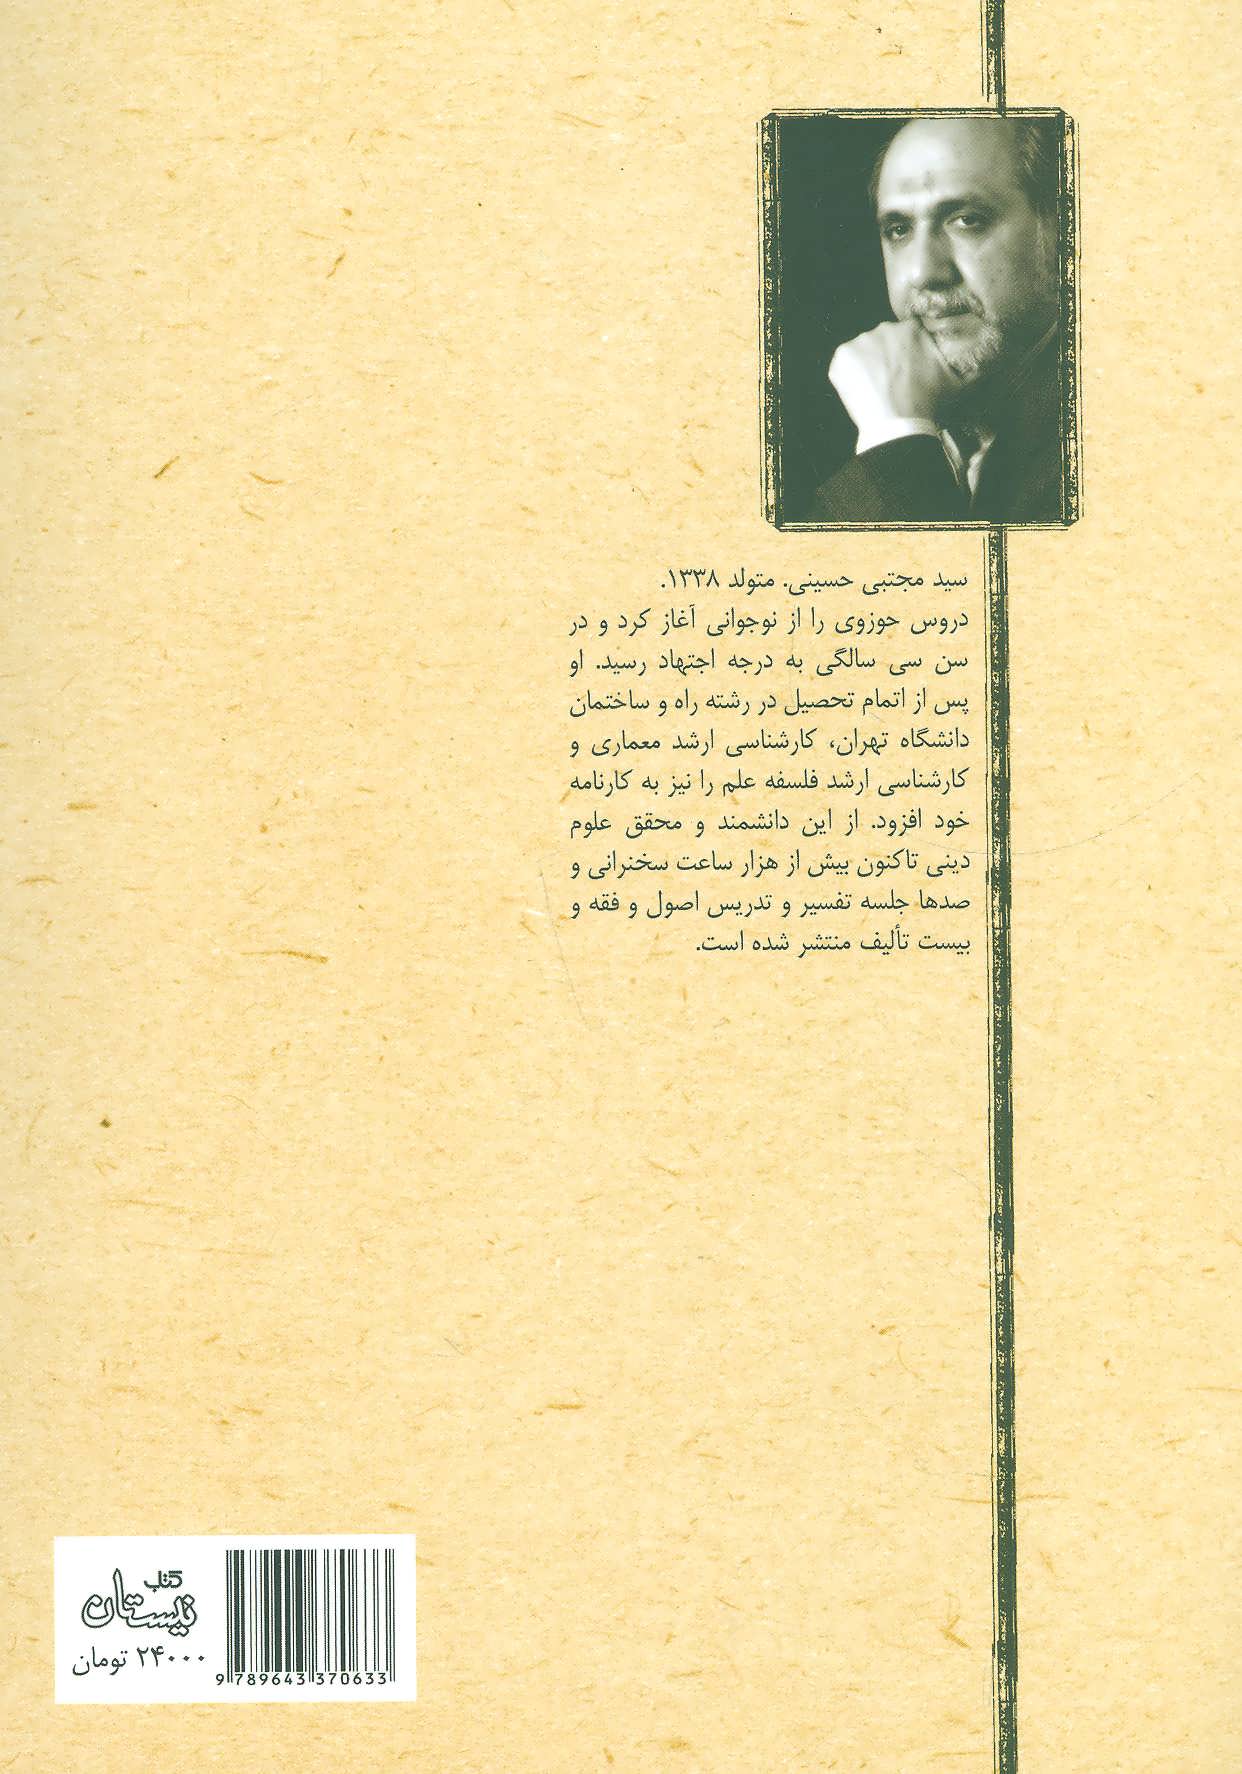 سید مجتبی حسینی. متولد ۱۳۳۸.
دروس حوزوی را از نوجوانی آغاز کرد و در
سن سی سالگی به درجه اجتهاد رسید. او
پس از اتمام تحصیل در رشته راه و ساختمان
دانشگاه تهران، کارشناسی ارشد معماری و
کارشناسی ارشد فلسفه علم را نیز به کارنامه
خود افزود. از این دانشمند و محقق علوم
دینی تاکنون بیش از هزار ساعت سخنرانی و
صدها جلسه تفسیر و تدریس اصول و فقه و
بیست تألیف منتشر شده است.
کتاب
نیستان
۲۴۰۰۰ تومان
9 789643 370633